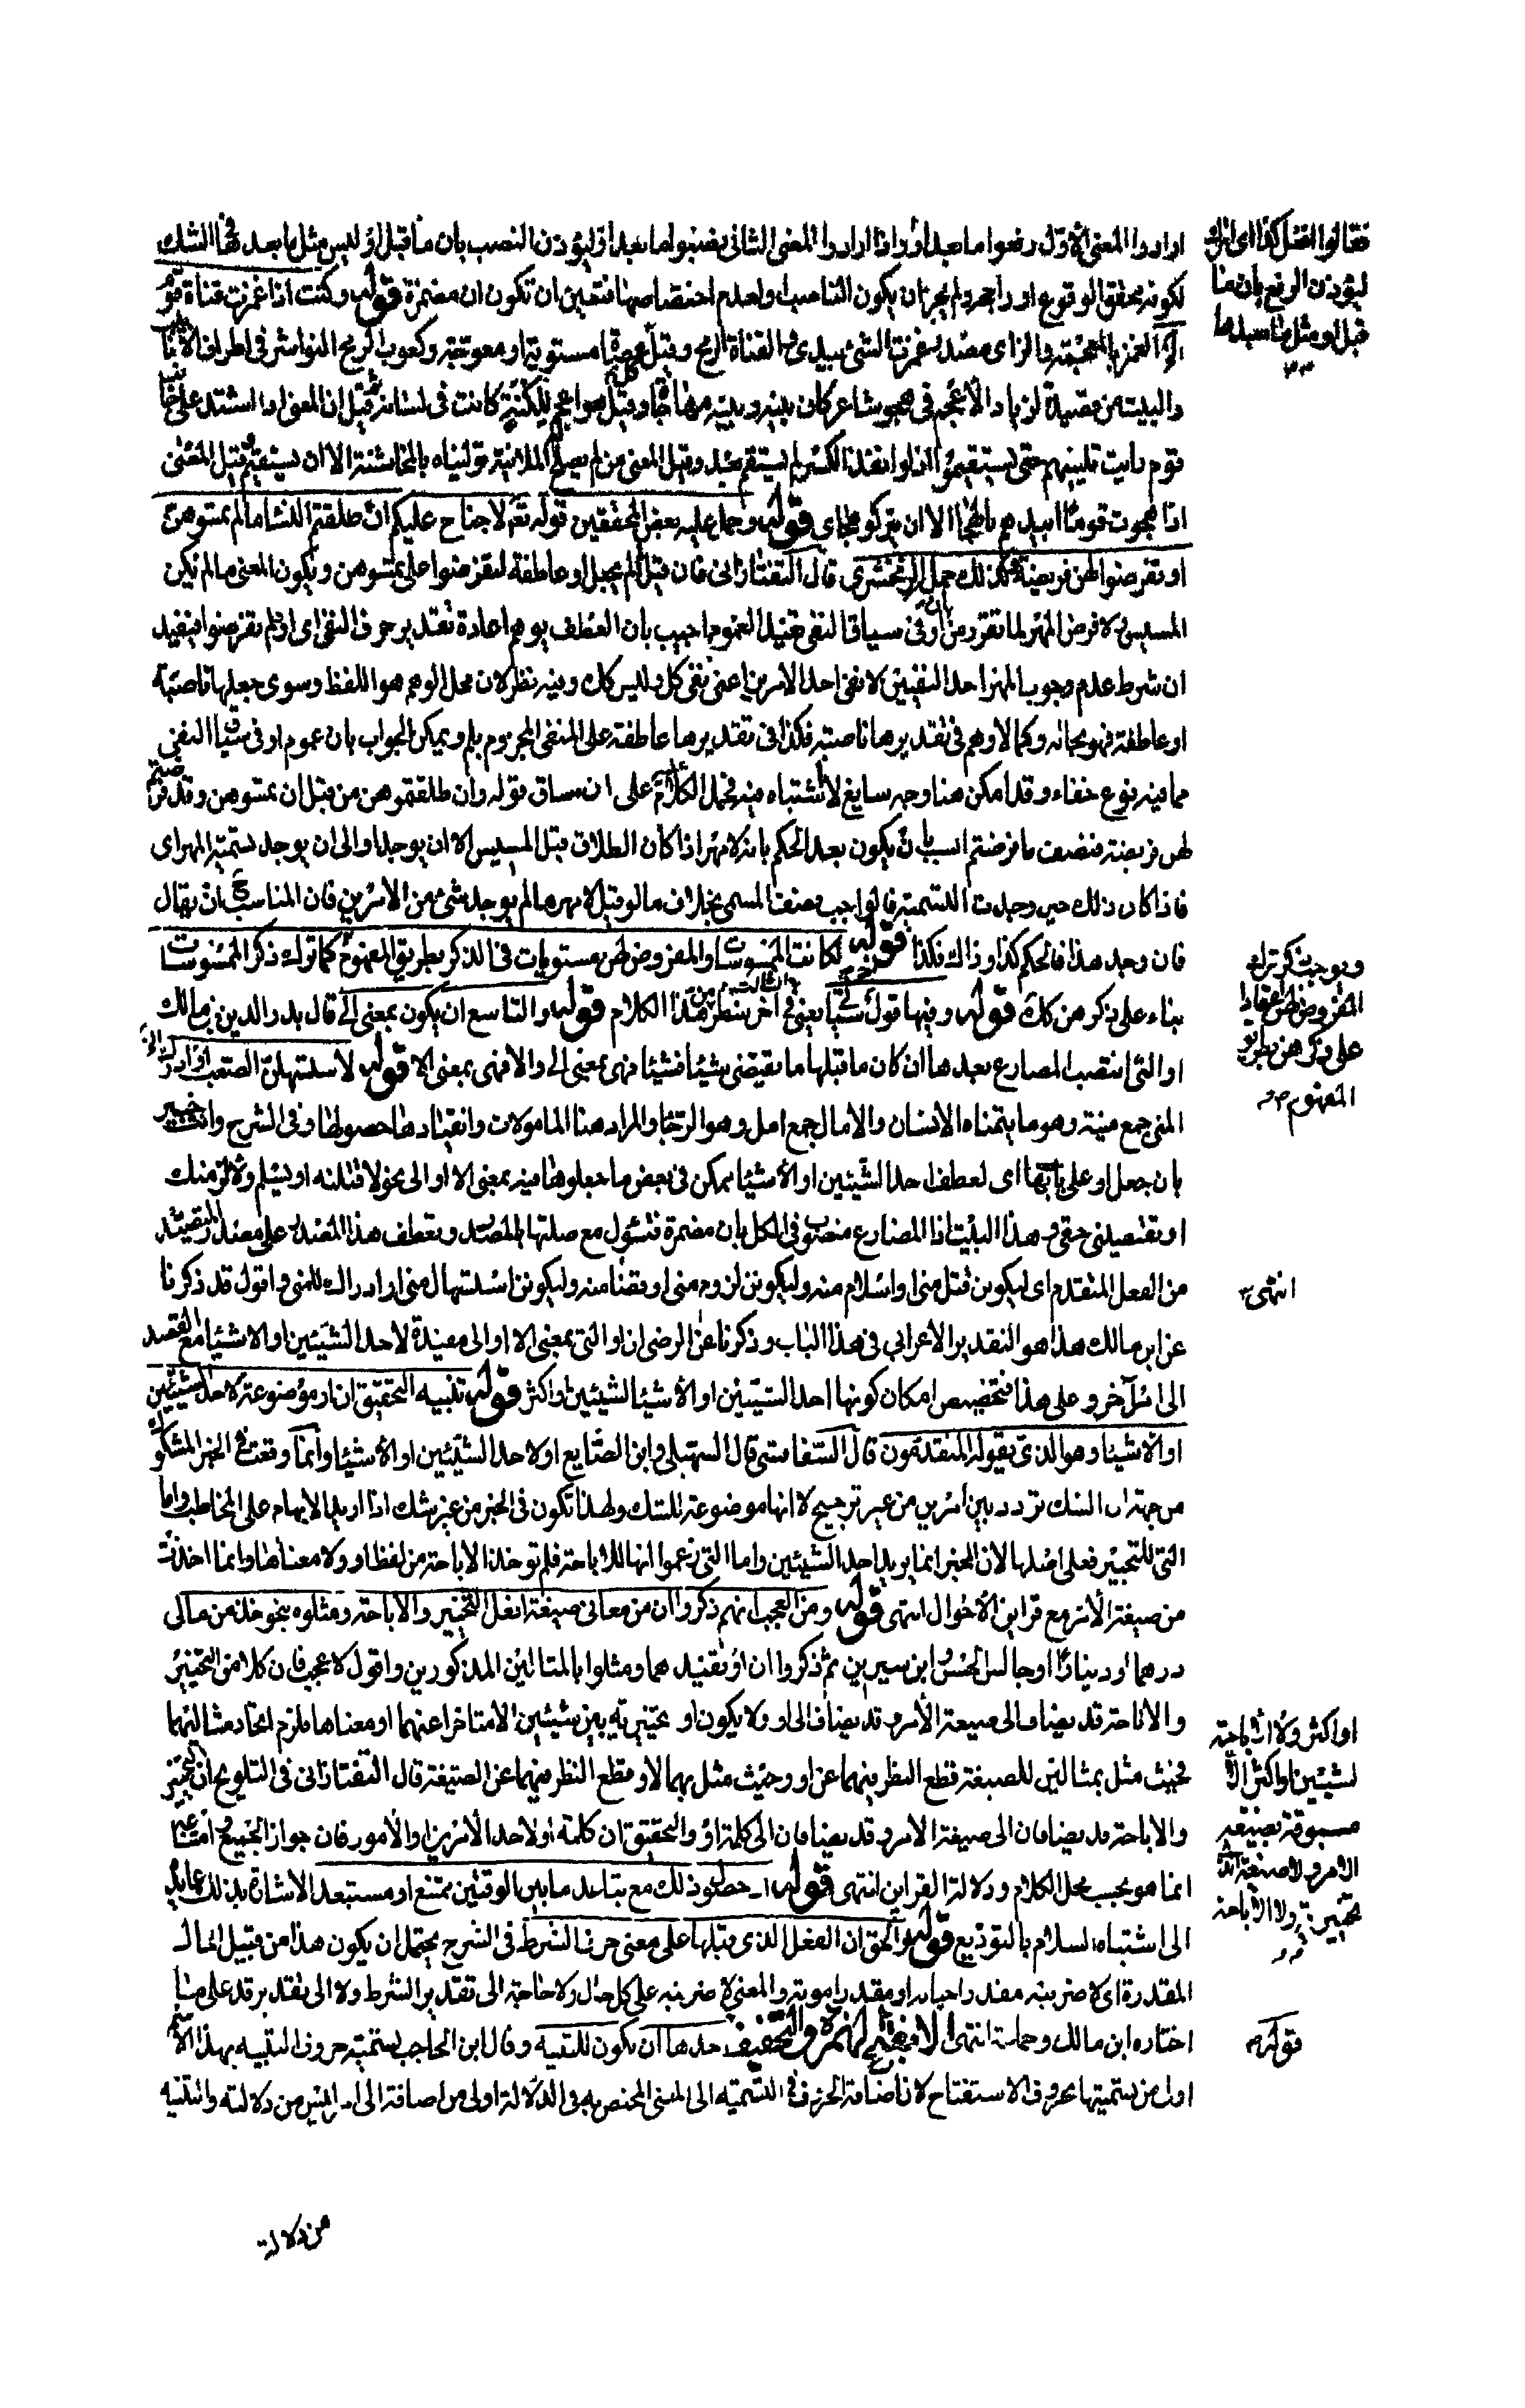 ارادوا المعنى الأول رفعوا ما بعد أو واذا ارادوا المعنى الثانى نصبوا ما بعد أو ليؤذن النصب بان ما قبل أو ليس مثل ما بعدها فى الشك
لكونه محقق الوقوع او راجحه ولم يجز ان يكون الناصب او لعدم اختصاصها فتعين ان تكون ان مضمرة قوله وكنت اذا غمزت قناة قوم
الغمز بالمعجمة والزاى مصدر غمزت الشئ بيدى والقناة الرمح وقيل عصا مستوية او معوجة وكعوب الرمح النواشز فى اطراف الأنابيب
والبيت من قصيدة لزياد الأعجم فى هجو شاعر كان بينه وبينه مهاجاة وقيل له اعجم للكنة كانت فى لسانه ثم قيل ان المعنى اذا اشتد على جانب
قوم رايت تليينهم حتى يستقيموا وقيل المعنى من لم يصلح بالملاينة توليناه بالمخاشنة الا ان يستقيم وقيل المعنى
اذا هجوت قوما ابيدهم بالهجا الا ان يتركوا هجاى قوله وحمل عليه بعض المحققين قوله تعالى لا جناح عليكم ان طلقتم النسا ما لم تمسوهن
او تفرضوا لهن فريضة وكذلك حمل الزمخشرى قال التفتازانى فان قيل لم لم يجعل او عاطفة لتفرضوا على تمسوهن ويكون المعنى ما لم يكن
المسيس ولا فرض المهر لما تقرر من ان او فى سياق النفى تفيد العموم اجيب بان العطف يوهم اعادة تقدير حرف النفى اى او لم تفرضوا فيفيد
ان شرط عدم وجوب المهر احد النفيين لا نفى احد الامرين اعنى نفى كل وليس كذلك وفيه نظر لان محل الوهم هو اللفظ وسوى جعلها ناصبة
او عاطفة فهو بحاله وكما لا وهم فى تقديرها ناصبة فكذا فى تقديرها عاطفة على المنفى المجزوم بلم ويمكن الجواب بان عموم او فى سياق النفى
مما فيه نوع خفاء وقد امكن هنا وجه سايغ لا اشتباه فيه فحمل الكلام عليه على ان مساق قوله وان طلقتموهن من قبل ان تمسوهن وقد فرضتم
لهن فريضة فنصف ما فرضتم انسب بان يكون بعد الحكم بانه لا مهر اذا كان الطلاق قبل المسيس الا ان يوجد او الى ان يوجد تسمية المهر اى
فاذا كان ذلك حين وجدت التسمية فالواجب نصف المسمى بخلاف ما لو قيل لا مهر ما لم يوجد شئ من الأمرين فان المناسب ح ان يقال
فان وجد هذا فالحكم كذا او ذاك فكذا قوله لكانت الممسوسات والمفروض لهن مستويات فى الذكر بطريق المفهوم كما ترك ذكر الممسوسات
بناء على ذكرهن كذلك قوله وفيها قول سيأتى يعنى فى آخر سطر من هذا الكلام قوله والتاسع ان يكون بمعنى الى قال بدر الدين بن مالك
او التى ينتصب المضارع بعدها ان كان ما قبلها ما ينقضى شيئا فشيئا فهى بمعنى الى والا فهى بمعنى الا قوله لاستسهلن الصعب او ادرك المنى
المنى جمع منية وهو ما يتمناه الانسان والآمال جمع امل وهو الرجا والمراد هنا المامولات وانقيادها حصولها وفى الشرح وانت خبير
بان جعل او على بابها اى لعطف احد الشيئين او الأشيا يمكن فى بعض ما جعلوها فيه بمعنى الا او الى نحو لاقتلنه او يسلم ولالزمنك
او تقضينى حقى وهذا البيت اذ المضارع منصوب فى الكل بان مضمرة فتسول مع صلتها بالمصدر وتعطف هذا المصدر على مصدر المتصيد
من الفعل المتقدم اى ليكون قتل منى او اسلام منه وليكونن لزوم منى او قضا منه وليكونن استسهال منى او ادراك للمنى واقول قد ذكرنا
عن ابن مالك هذا هو التقدير الاعرابى فى هذا الباب وذكرنا عن الرضى ان او التى بمعنى الا او الى مفيدة لاحد الشيئين او الاشيا مع القصد
الى امر آخر وعلى هذا فتخصيص امكان كونها احد الشيئين او الأشيا الشيئين او اكثر قوله تنبيه التحقيق ان او موضوعة لاحد الشيئين
او الأشيا وهو الذى يقوله المتقدمون قال السفاقسى قال السهيلى وابن الضايع او لاحد الشيئين او الأشيا وانما وقعت فى الخبر المشكوك
من جهة ان الشك تردد بين امرين من غير ترجيح لا انها موضوعة للشك ولهذا تكون فى الخبر من غير شك اذا اريد الابهام على المخاطب واما
التى للتخيير فعلى اصلها لان المخبر انما يريد احد الشيئين واما التى زعموا انها للاباحة فلم توخذ الاباحة من لفظ او ولا معناها وانما اخذت
من صيغة الأمر مع قراين الأحوال انتهى قوله ومن العجب انهم ذكروا ان من معانى صيغة افعل التخيير والاباحة ومثلوه بنحو خذ من مالى
درهما او دينارا او جالس الحسن او ابن سيرين ثم ذكروا ان او تفيدهما ومثلوا بالمثالين المذكورين واقول لا عجب فان كلا من التخيير
والاباحة قد يضاف الى صيغة الأمر وقد يضاف الى او ولا يكون او تخييرية بين شيئين الا متاخرا عنهما او معناها فلزم اتحاد مثاليهما
فحيث مثل بمثالين للصيغة قطع النظر فيهما عن او وحيث مثل بهما لاو قطع النظر فيهما عن الصيغة قال التفتازانى فى التلويح ان التخيير
والاباحة قد يضافان الى صيغة الامر وقد يضافان الى كلمة او والتحقيق ان كلمة او لاحد الأمرين او الأمور فان جواز الجميع وامتناعه
انما هو بحسب محل الكلام ودلالة القراين انتهى قوله وذلك مع تباعد ما بين الوقتين ممتنع او مستبعد الاشارة بذلك عايد
الى اشتباه السلام بالتوديع قوله والحق ان الفعل الذى قبلها على معنى حرف الشرط فى الشرح يحتمل ان يكون هذا من قبيل الحال
المقدرة اى لاضربنه مقدرا حياته او مقدرا موته والمعنى لاضربنه على كل حال ولا حاجة الى تقدير الشرط ولا الى تقدير قد على ما
اختاره ابن مالك وجماعة انتهى ألا بفتح الهمزة والتخفيف احدها ان تكون للتنبيه وقال ابن الحاجب تسمية حروف التنبيه بهذا الاسم
اولى من تسميتها بحروف الاستفتاح لان اضافة الحرف فى التسمية الى المعنى المختص به فى الدلالة اولى من اضافة الى امر ليس من دلالته والتنبيه
من دلالة
فقالوا افعل كذا اى اترك
ليؤذن الرفع بان ما
قبل او مثل ما بعدها
ويوجب ذكر ترك
المفروض لهن اعتمادا
على ذكرهن بطريق
المفهوم صح
انتهى
او اكثر ولا اباحة
لشيئين او اكثر الا
مسبوقة بصيغة
الامر ولا صيغة
تخييرية ولا الاباحة
قوله